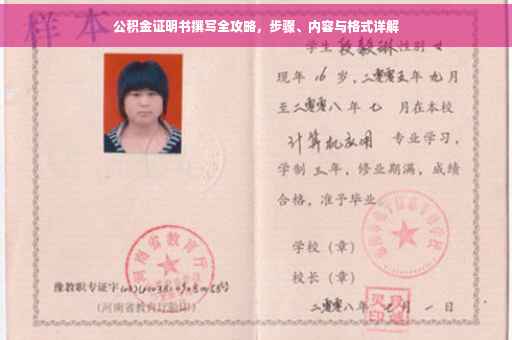 公积金证明书撰写全攻略，步骤、内容与格式详解
样本
学生段毅琳性别女
现年16岁，二零零五年九月
至二零零八年七月在本校
计算机应用 专业学习，
学制三年，修业期满，成绩
合格，准予毕业。
学校（章）
校长（章）
二零零八年七月一日
河南省教育厅
豫教职专证字
（河南省教育厅验印）